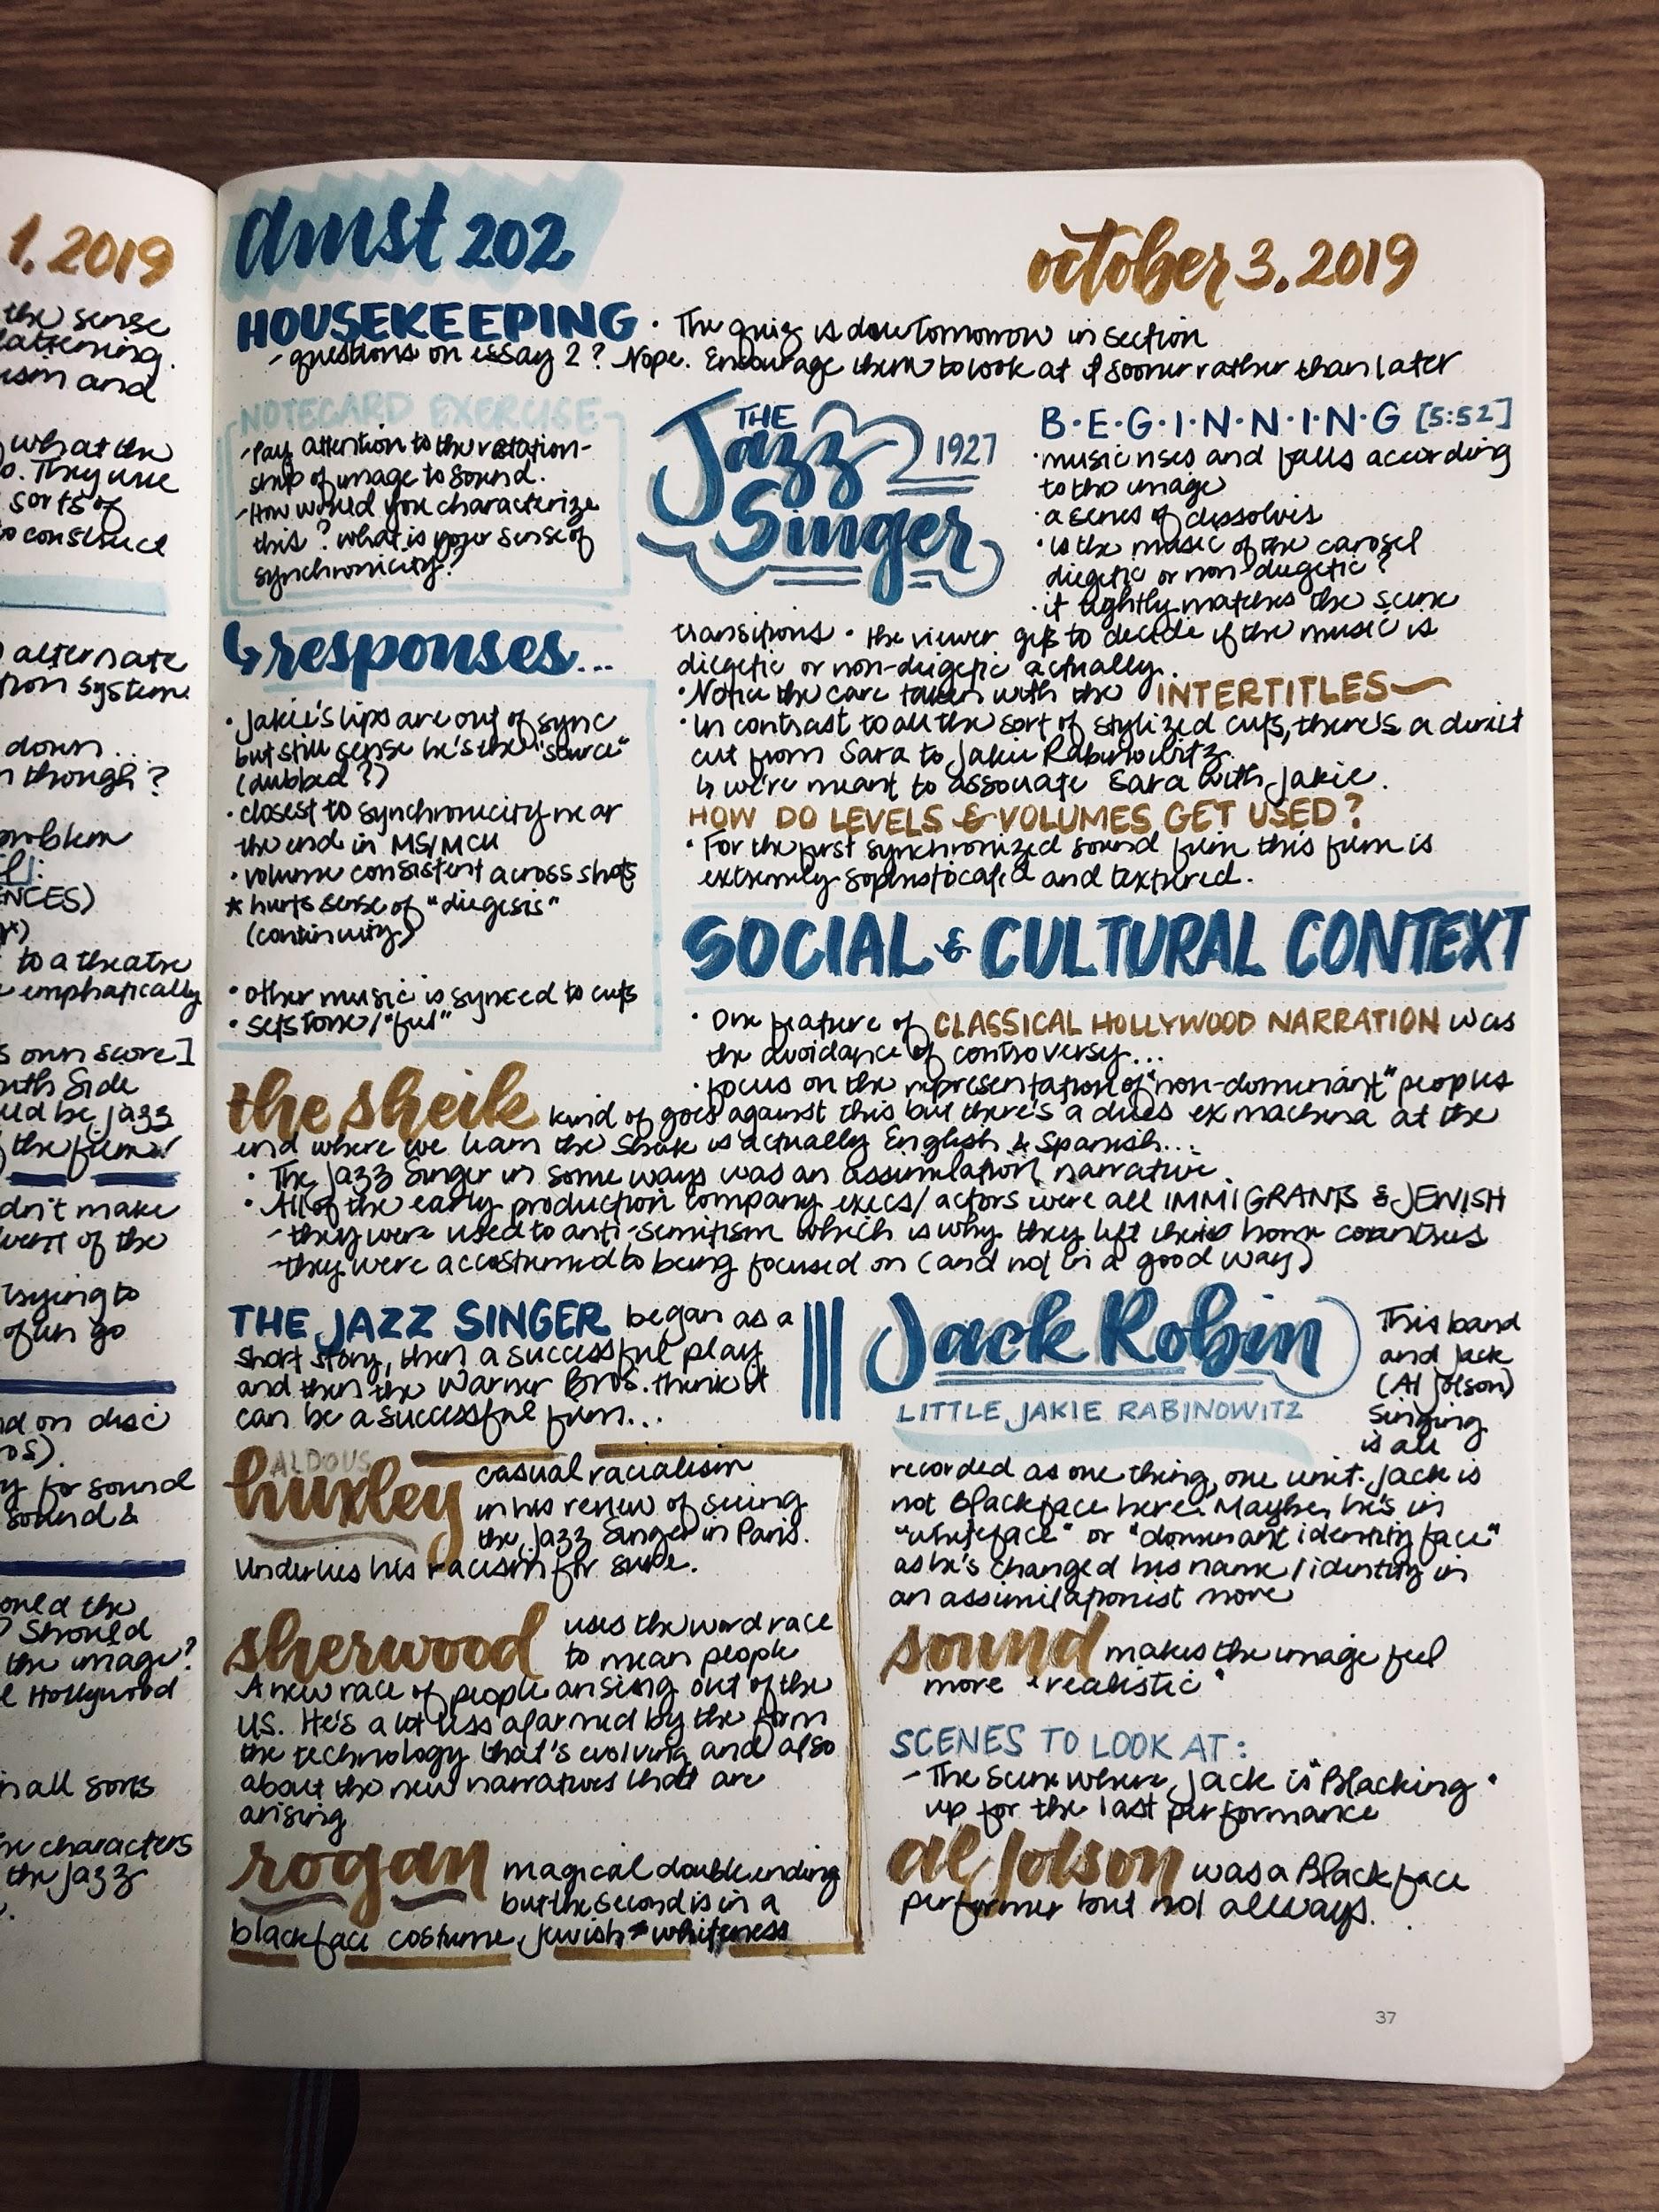 1, 2019
the sense
what the
. They use
sorts of
to construct
alternate
system.
down...
though?
problem
to a theatre
emphatically
own score]
jazz
the film!
make
of the
trying to
often go
on disc
for sound
sound &
the
Should
the image?
Hollywood
in all sorts
characters
the jazz
amst 202
october 3, 2019
HOUSEKEEPING · The quiz is due tomorrow in section
- questions on essay 2? Nope. Encourage them to look at it sooner rather than later
NOTECARD EXERCISE
- Pay attention to the relation-
ship of image to sound.
- How would you characterize
this? what is your sense of
synchronicity?
↳ responses...
· Jakie's lips are out of sync
but still sense he's the "source"
(dubbed?)
· closest to synchronicity near
the end in MS/MCU
· volume consistent across shots
* hurts sense of "diegesis"
(continuity)
· other music is synced to cuts
· sets tone/"feel"
THE
Jazz 1927
Singer
B·E·G·I·N·N·I·N·G [5:52]
· music rises and falls according
to the image
· a series of dissolves
· is the music of the carosel
diegetic or non-diegetic?
· it tightly matches the scene
transitions · the viewer gets to decide if the music is
diegetic or non-diegetic actually.
· Notice the care taken with the INTERTITLES
· In contrast to all the sort of stylized cuts, there's a direct
cut from Sara to Jakie Rabinowitz.
↳ we're meant to associate Sara with Jakie.
HOW DO LEVELS & VOLUMES GET USED?
· For the first synchronized sound film this film is
extremely sophisticated and textured.
SOCIAL & CULTURAL CONTEXT
· One feature of CLASSICAL HOLLYWOOD NARRATION was
the avoidance of controversy...
· focus on the representation of "non-dominant" peoples
the sheik kind of goes against this but there's a dues ex machina at the
end where we learn the Sheik is actually English & Spanish...
· The Jazz Singer in some ways was an assimilation narrative.
· All of the early production company execs/actors were all IMMIGRANTS & JEWISH
- they were used to anti-semitism which is why they left their home countries
- they were accustomed to being focused on (and not in a good way)
THE JAZZ SINGER began as a
short story, then a successful play
and then the Warner Bros. think it
can be a successful film...
ALDOUS
huxley casual racialism
in his review of seeing
the Jazz Singer in Paris.
Underlies his racism for sure.
sherwood uses the word race
to mean people
A new race of people arising out of the
US. He's a lot less alarmed by the form
the technology that's evolving and also
about the new narratives that are
arising
rogan magical double ending
but the second is in a
blackface costume, Jewish ≠ whiteness
Jack Robin
LITTLE JAKIE RABINOWITZ
This band
and Jack
(Al Jolson)
Singing
is all
recorded as one thing, one unit. Jack is
not Blackface here. Maybe, he's in
"whiteface" or "dominant identity face"
as he's changed his name/identity in
an assimilationist move
sound makes the image feel
more "realistic"
SCENES TO LOOK AT:
- The scene where Jack is "Blacking"
up for the last performance
al Jolson was a Blackface
performer but not always.
37